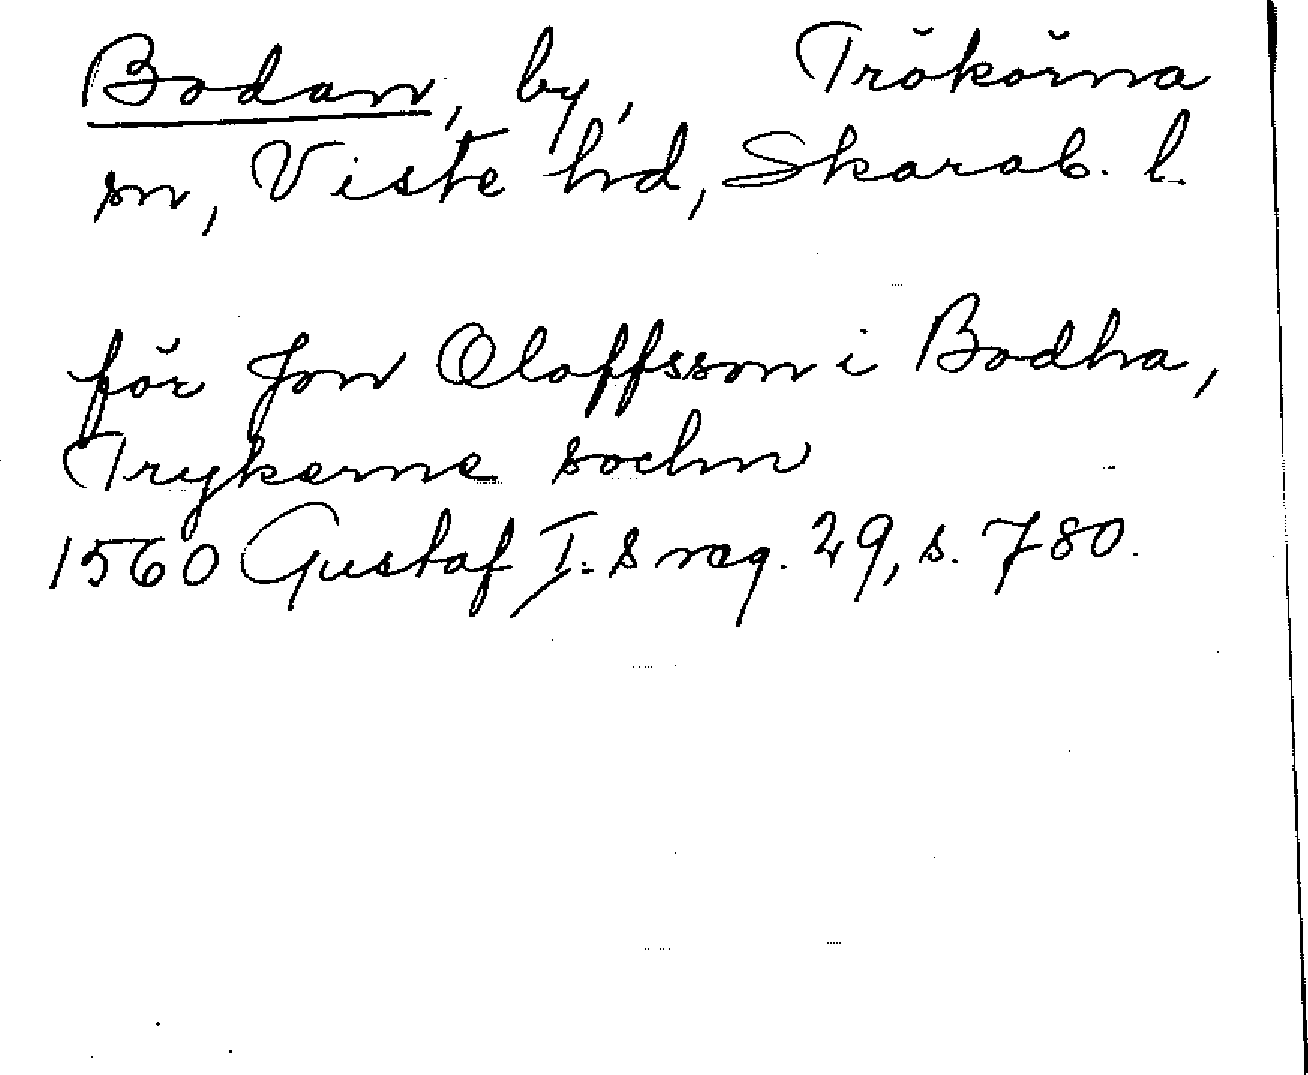 Bodan, by, Trökörna
sn, Viste hd, Skarab. l.
för Jon Oloffsson i Bodha,
Trykerne sochn
1560 Gustaf I:s reg. 29, s. 780.